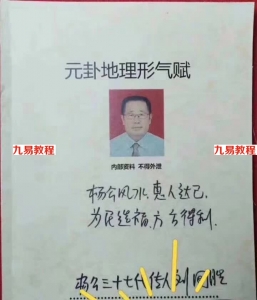 元卦地理形气赋
九易教程
九易教程
内部资料 不得外泄
杨公风水,惠人达己
为民造福,方令得利.
杨公三十七代传人刘国胜